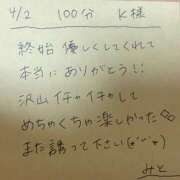 4/2 100分 K様
終始 優しくしてくれて
本当に ありがとう!!
沢山 イチャイチャして
めちゃくちゃ 楽しかった
また 誘って 下さい(*ˊᵕˋ*)
みと